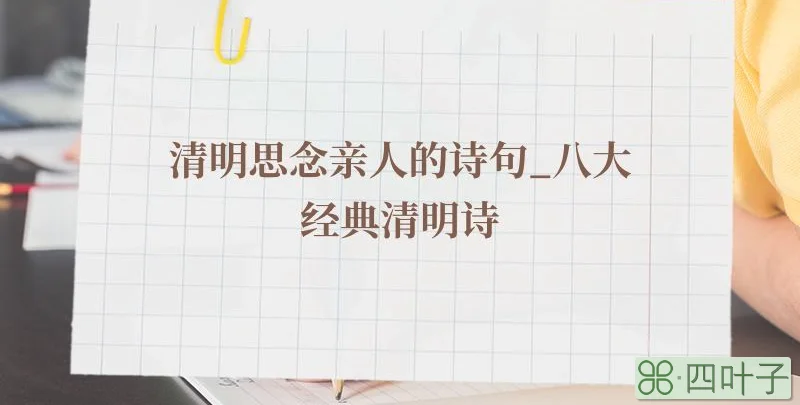 清明思念亲人的诗句_八大
经典清明诗
四叶子